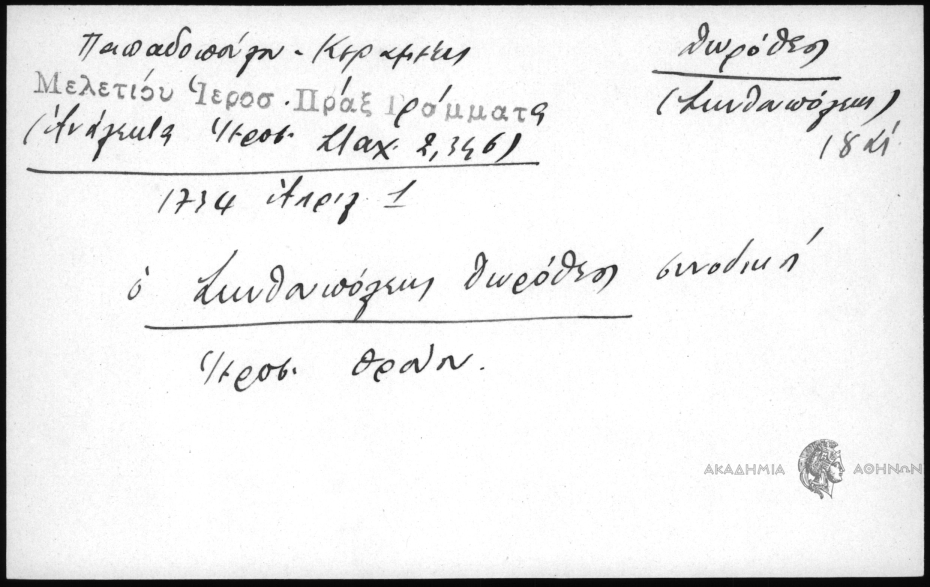 Παπαδοπούλου - Κεραμέως
Δωρόθεος
Μελετίου Ἱεροσ. Πράξ Γράμματα
(Σκυθοπόλεως)
(Ἀνάλεκτα Ἱεροσ. Σταχ. 2, 346)
18 αἰ.
1734 Ἀπριλ 1
ὁ Σκυθοπόλεως Δωρόθεος συνοδικὴ
Ἱεροσ. Θρόνου.
ΑΚΑΔΗΜΙΑ ΑΘΗΝΩΝ